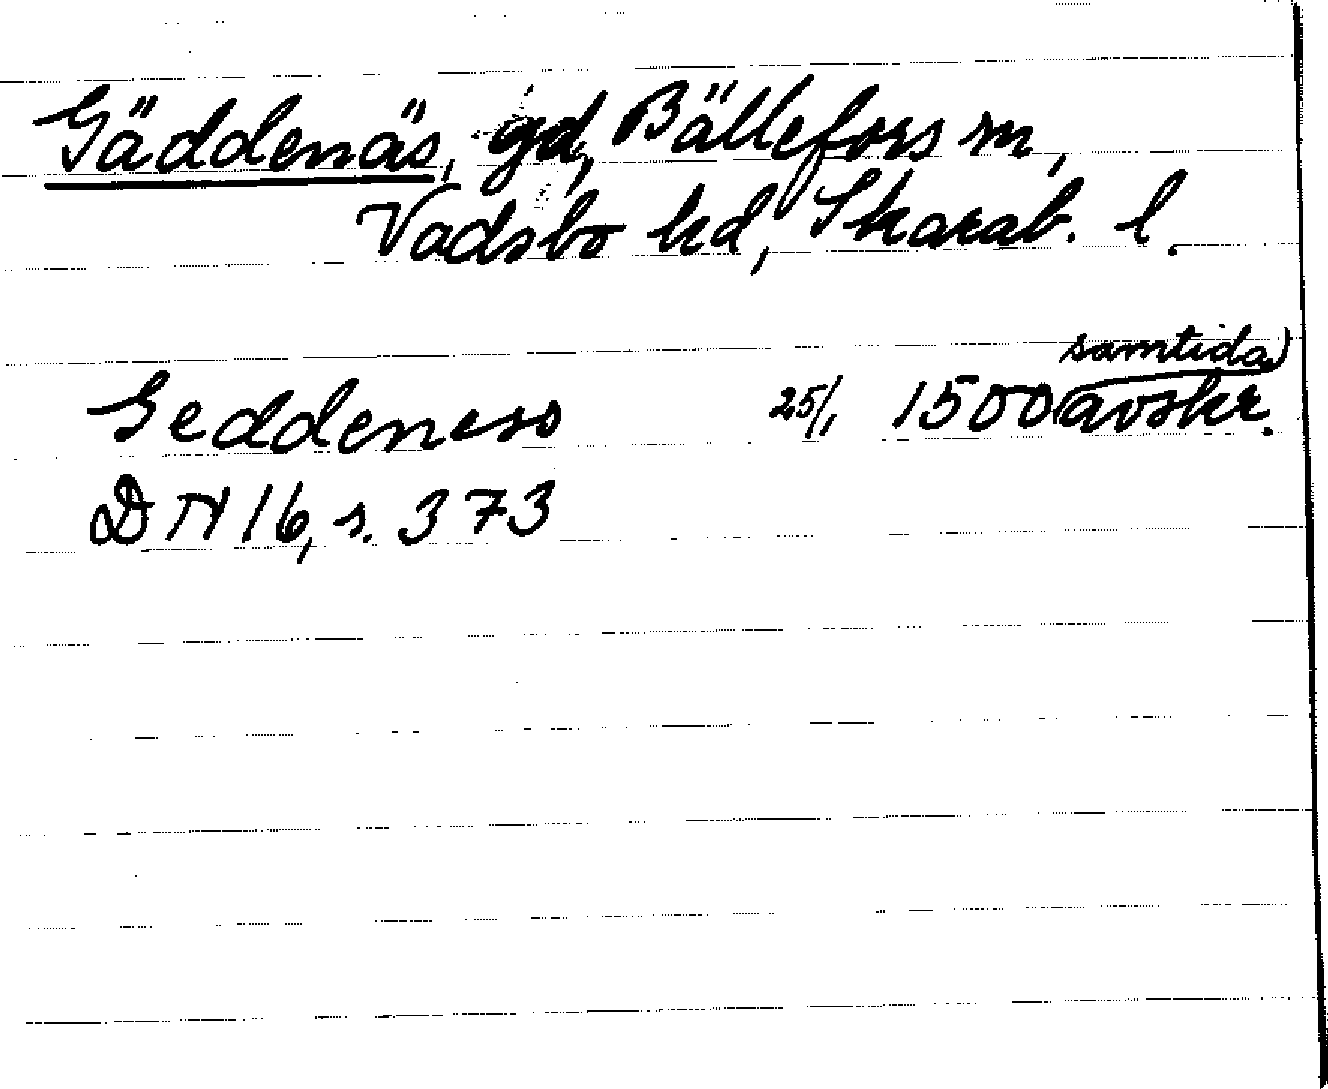 Gäddenäs, gd, Bällefors sn,
Vadsbo hd, Skarab. l.
Geddeness 25/1 1500 (samtida avskr.)
DN 16, s. 373